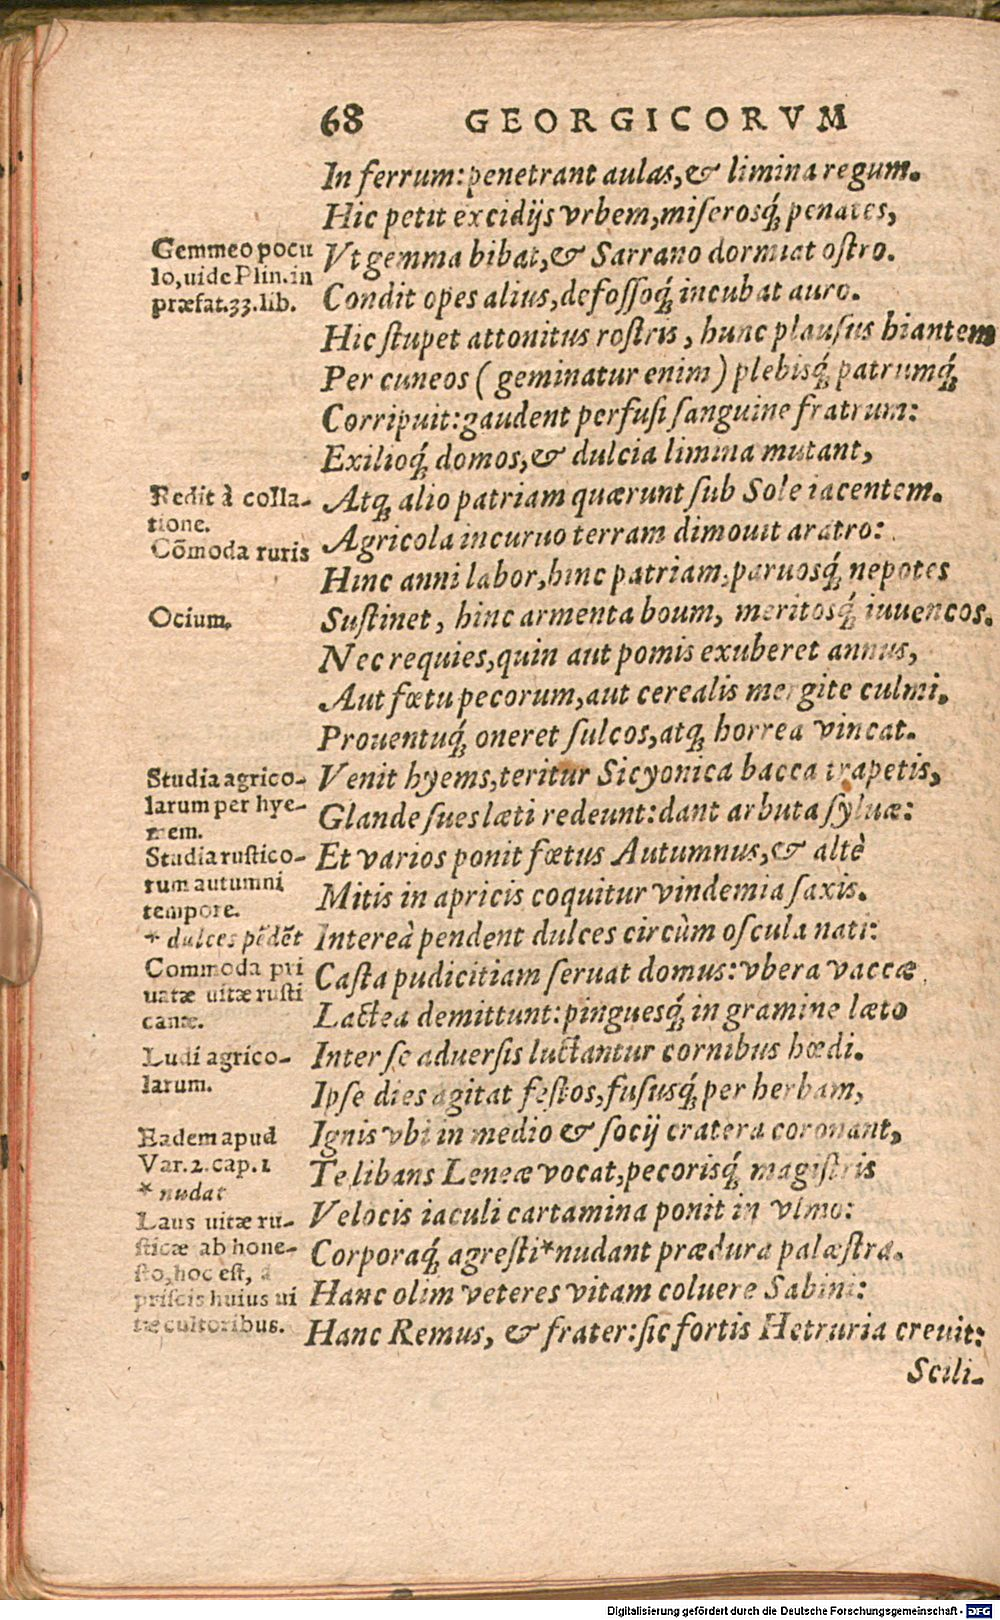 68 GEORGICORVM
In ferrum: penetrant aulas, & limina regum.
Hic petit excidijs vrbem, miserosq́; penates,
Vt gemma bibat, & Sarrano dormiat ostro.
Condit opes alius, defossoq́; incubat auro.
Hic stupet attonitus rostris, hunc plausus hiantem
Per cuneos ( geminatur enim ) plebisq́; patrumq́;
Corripuit: gaudent perfusi sanguine fratrum:
Exilioq́; domos, & dulcia limina mutant,
Atq; alio patriam quærunt sub Sole iacentem.
Agricola incuruo terram dimouit aratro:
Hinc anni labor, hinc patriam, paruosq́; nepotes
Sustinet, hinc armenta boum, meritosq́; iuuencos.
Nec requies, quin aut pomis exuberet annus,
Aut fœtu pecorum, aut cerealis mergite culmi.
Prouentuq́; oneret sulcos, atq; horrea vincat.
Venit hyems, teritur Sicyonica bacca trapetis,
Glande sues læti redeunt: dant arbuta syluæ:
Et varios ponit fœtus Autumnus, & altè
Mitis in apricis coquitur vindemia saxis.
Intereà pendent dulces circùm oscula nati:
Casta pudicitiam seruat domus: vbera vaccæ
Lactea demittunt: pinguesq́; in gramine læto
Inter se aduersis luctantur cornibus hœdi.
Ipse dies agitat festos, fususq́; per herbam,
Ignis vbi in medio & socij cratera coronant,
Te libans Lenæe vocat, pecorisq́; magistris
Velocis iaculi cartamina ponit in vlmo:
Corporaq́; agresti * nudant prædura palæstra.
Hanc olim veteres vitam coluere Sabini:
Hanc Remus, & frater: sic fortis Hetruria creuit:
Scili-
Gemmeo pocu
lo, uide Plin. in
præfat. 33. lib.
Redit à colla-
tione.
Cōmoda ruris
Ocium.
Studia agrico-
larum per hye-
mem.
Studia rustico-
rum autumni
tempore.
* dulces pēdēt
Commoda pri
uatæ uitæ rusti
canæ.
Ludi agrico-
larum.
Eadem apud
Var. 2. cap. 1
* nudat
Laus uitæ ru-
sticæ ab hone-
sto, hoc est, à
priscis huius ui
tæ cultoribus.
Digitalisierung gefördert durch die Deutsche Forschungsgemeinschaft - DFG